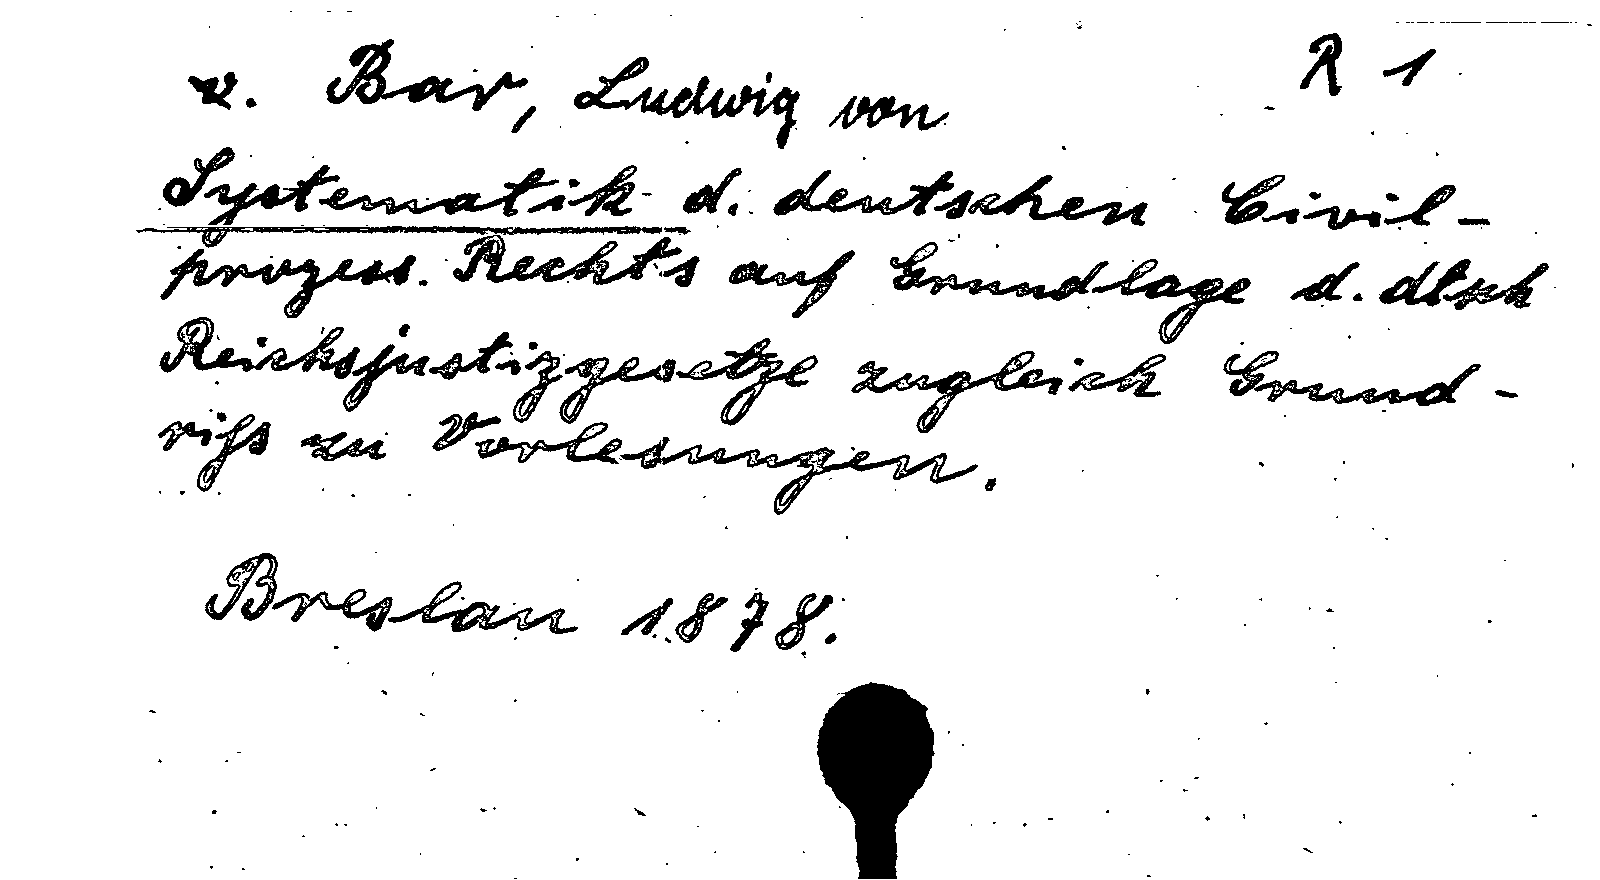 v. Bar, Ludwig von R 1
Systematik d. deutschen Civil-
prozess. Rechts auf Grundlage d. dtsch
Reichsjustizgesetze zugleich Grund-
riſs zu Vorlesungen.
Breslau 1878.